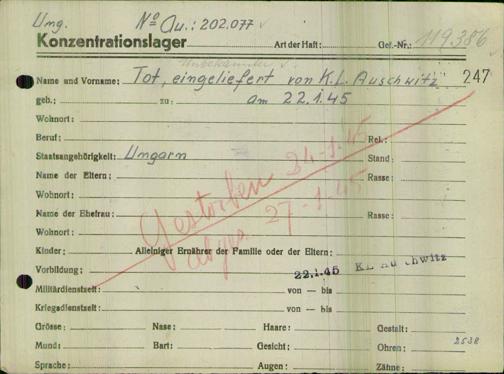 Ung. № Au.: 202.077
Konzentrationslager Art der Haft: Gef.-Nr.: 119.386
Unbekannter
Name und Vorname: Tot, eingeliefert von K.L. Auschwitz 247
geb.: zu: am 22.1.45
Wohnort:
Beruf: Rel.:
Staatsangehörigkeit: Ungarn Stand:
Name der Eltern: Rasse:
Gestorben 24.1.45
Wohnort:
Name der Ehefrau: Rasse:
abges. 27.1.45
Wohnort:
Kinder: Alleiniger Ernährer der Familie oder der Eltern:
Vorbildung: 22.1.45 KL Auschwitz
Militärdienstzeit: von — bis
Kriegsdienstzeit: von — bis
Grösse: Nase: Haare: Gestalt:
Mund: Bart: Gesicht: Ohren: 2538
Sprache: Augen: Zähne: